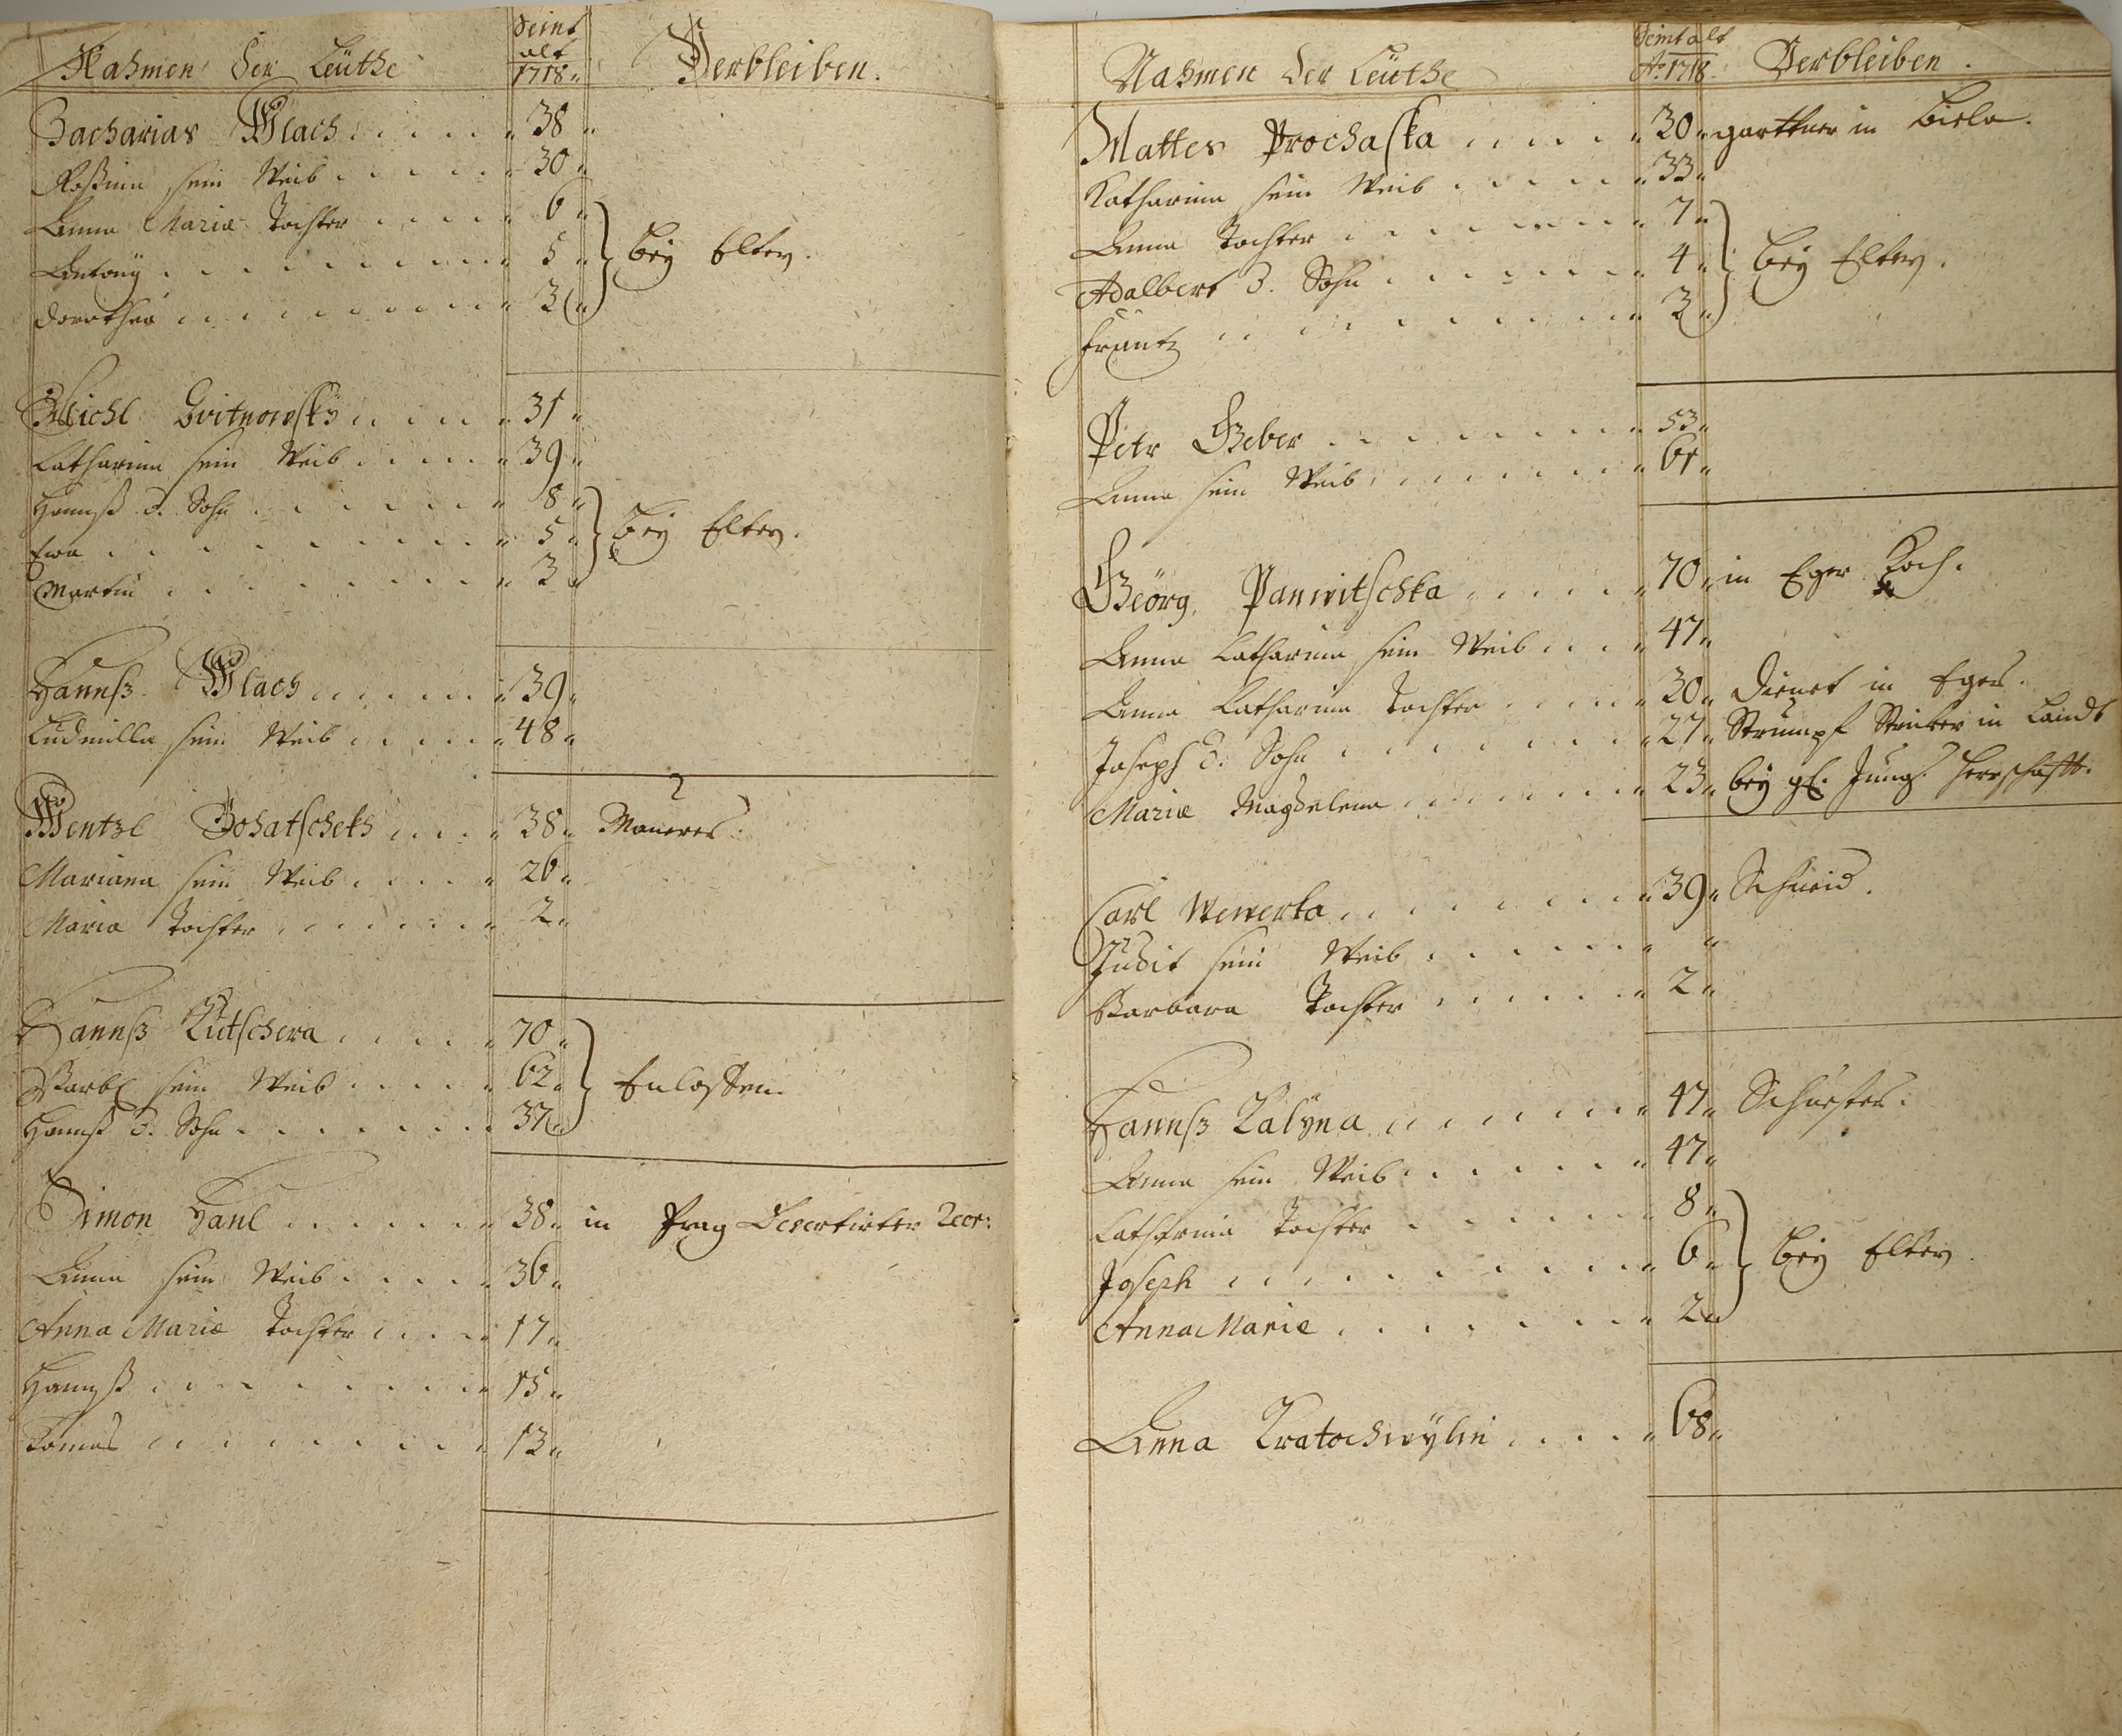 Nahmen der Leüthe Seint alt 1718 Verbleiben.
Zacharias Wlach 38
Rosina sein Weib 30
Anna Maria Tochter 6
Antony 5 bey Eltern.
Dorothea 3
Michl 31
Catharina sein Weib 39
Hannß d. Sohn 8
Ewa 5 bey Eltern.
Martin 3
Hannß Wlach 39
Ludmilla sein Weib 48
Wentzl Bohatscheck 38 Maurer.
Mariana sein Weib 26
Maria Tochter 2
Hannß Kutschera 70
Barbl sein Weib 62
Hannß d. Sohn 37
Simon Hanl 38 in Prag
Anna sein Weib 36
Anna Maria Tochter 17
Hannß 15
Tomas 13
Nahmen der Leüthe Seint alt Ao 1718. Verbleiben.
Mattes Prochaska 30 garttner in Biela.
Katharina sein Weib 33
Anna Tochter 7
Adalbert d. Sohn 4 bey Eltern.
Frantz 3
Petr Geber 53
Anna sein Weib 61
Geörg Panwitschka 70 in Eger Koch.
Anna Catharina sein Weib 47
Anna Catharina Tochter 30 Dienet in Eger.
Joseph d. Sohn 27 Strumpf Stricker in Landt
Maria Magdalena 23 bey Herrschafft.
Carl Wewerka 39 Schneid.
Judit sein Weib
Barbara Tochter 2
Hannß Kalyna 47 Schuster.
Anna sein Weib 47
Catharina Tochter 8
Joseph 6 bey Eltern.
Anna Marie 2
Anna Kratochwÿlin 68